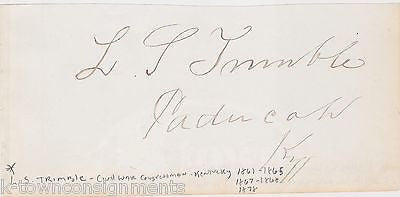 L S Trimble
Paducah
Ky
*
L. S. TRIMBLE - CIVIL WAR CONGRESSMAN - KENTUCKY 1861-1865
1867-1868
1878
k-towncongnments